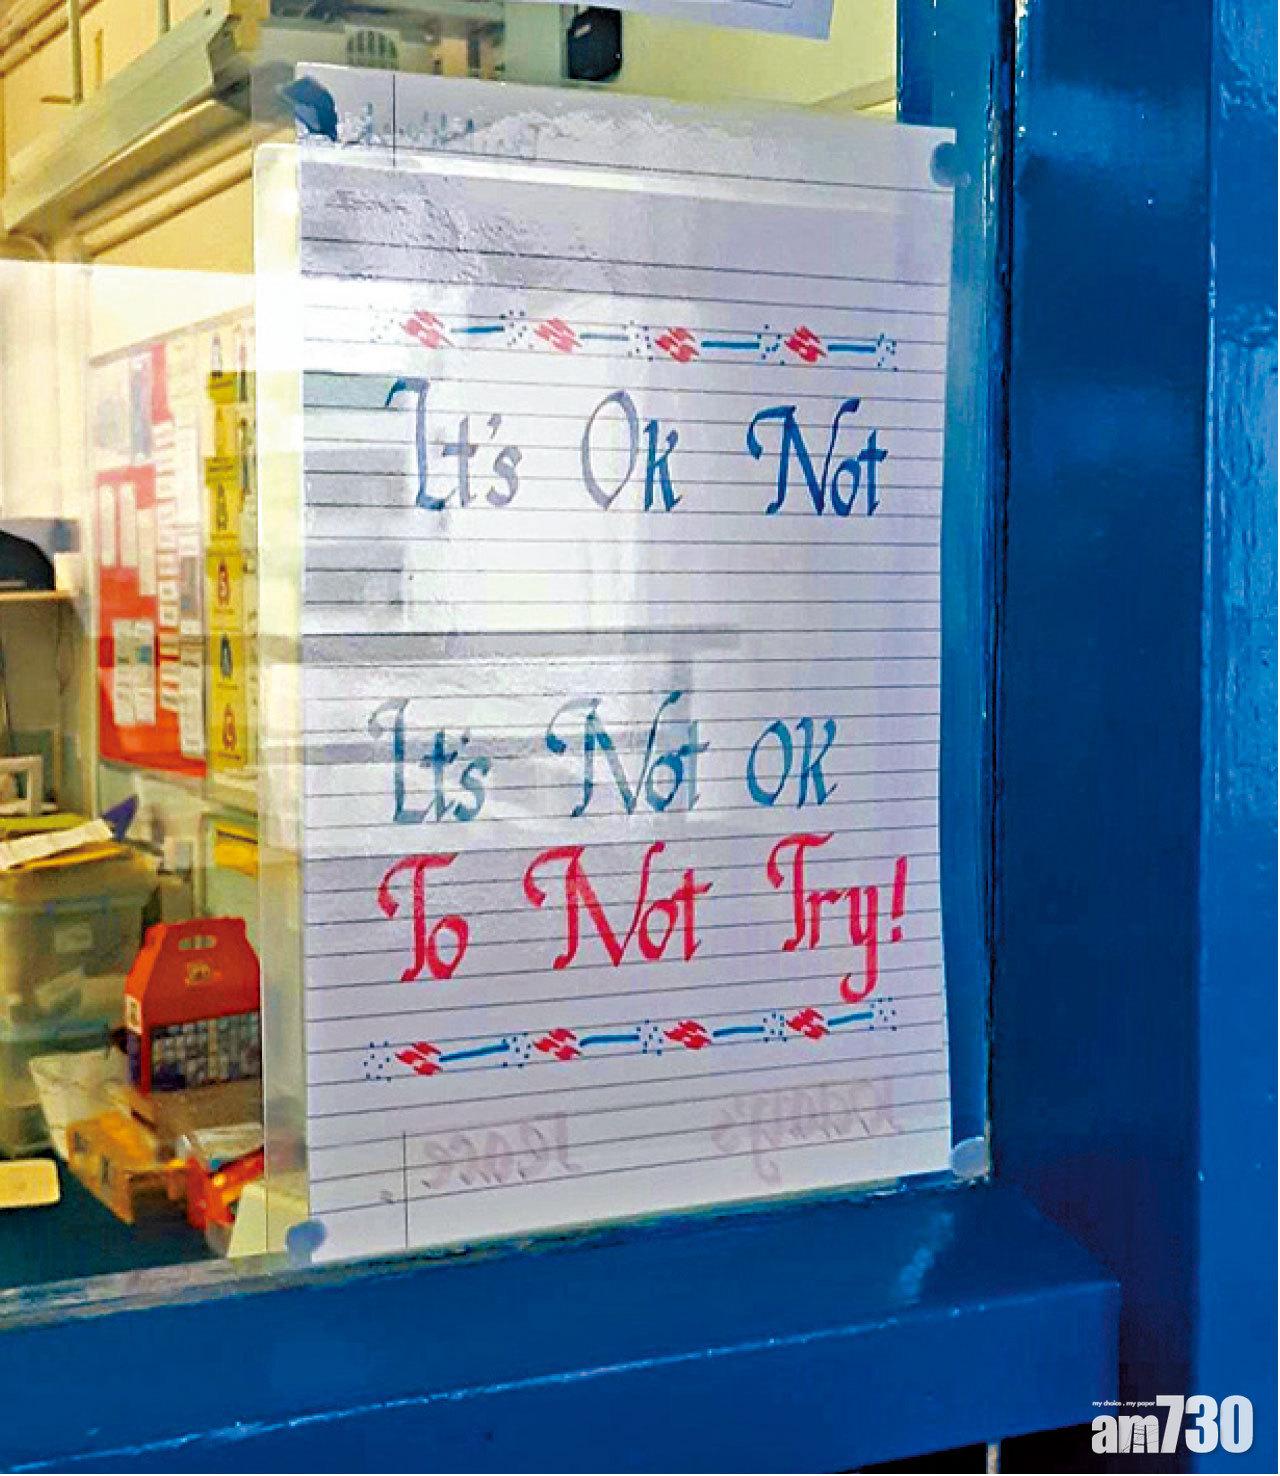 It's Ok Not
It's Not OK
To Not Try!
my choice . my paper
am730